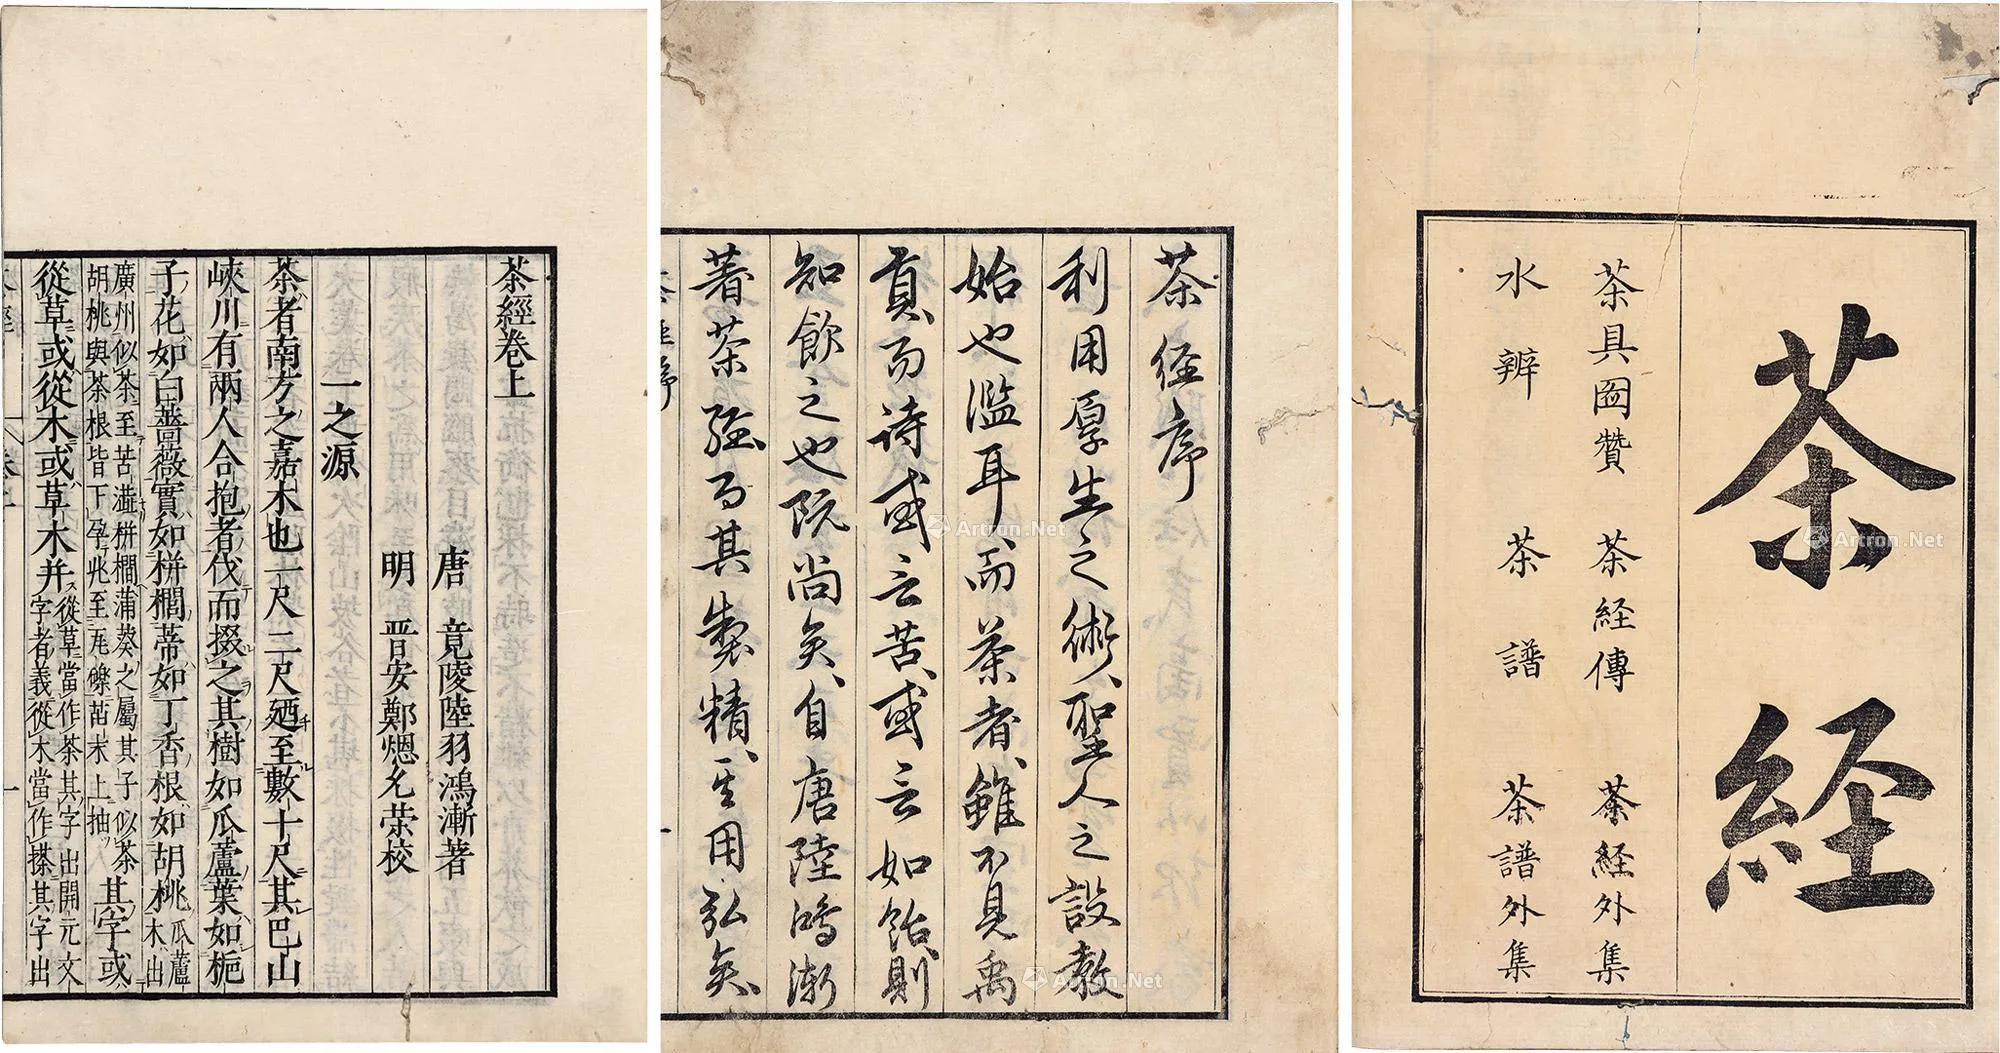 茶経
茶具図賛 茶経傳 茶経外集
水辨 茶譜 茶譜外集
茶経序
利用厚生之術、聖人之設教
始也濫耳、而茶者、雖不見禹
貢、而詩或云苦、或云如飴、則
知飲之也既尚矣、自唐陸鴻漸
著茶經而其製精、其用弘矣、
茶經序
茶經卷上
唐 竟陵陸羽鴻漸著
明 晋安鄭熜允榮校
一之源
茶者南方之嘉木也一尺二尺廼至數十尺其巴山
峽川有兩人合抱者伐而掇之其樹如瓜蘆葉如梔
子花如白薔薇實如栟櫚蒂如丁香根如胡桃瓜蘆木出
廣州似茶至苦澁栟櫚蒲葵之屬其子似茶
胡桃與茶根皆下孕兆至瓦礫苗木上抽
其字或
從草或從木或草木并
從草當作茶其字出開元文
字者義從木當作搽其字出
Artron.Net
Artron.Net
Artron.Net